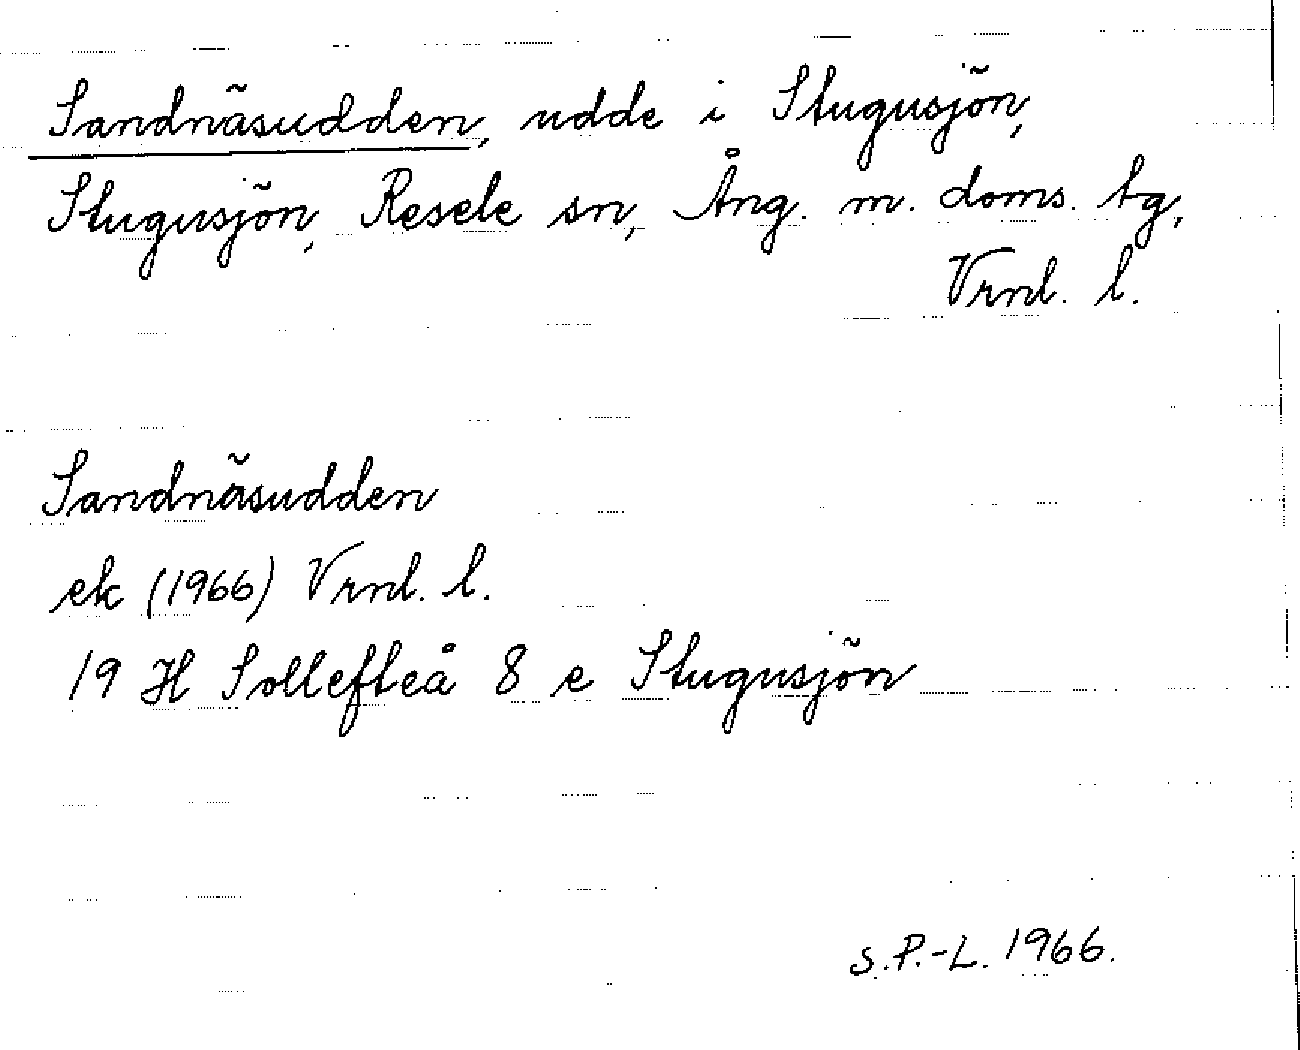 Sandnäsudden, udde i Stugusjön,
Stugusjön, Resele sn, Ång. m. doms. tg,
Vrnl. l.
Sandnäsudden
ek (1966) Vrnl. l.
19 H Sollefteå 8 e Stugusjön
S.P.-L. 1966.